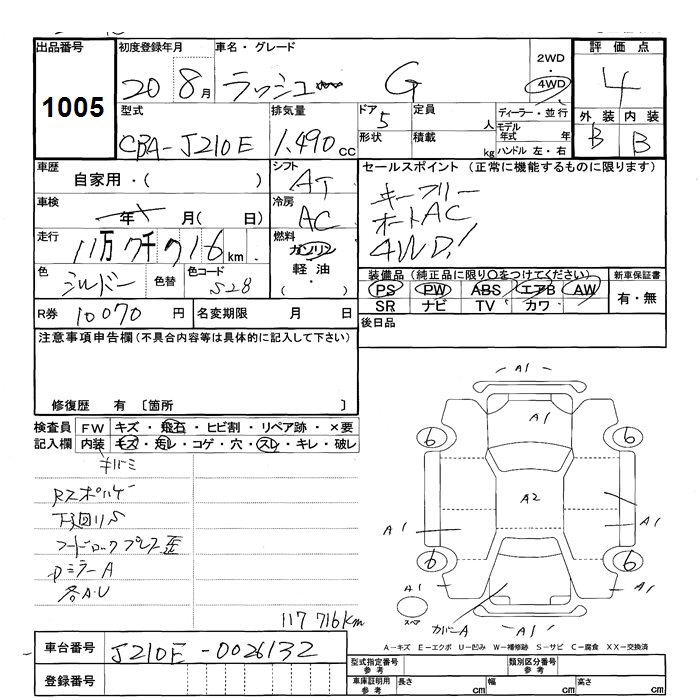 出品番号
1005
初度登録年月
20 8月
車名・グレード
ラッシュ G
2WD
4WD
評価点
4
外装 内装
B B
型式
CBA-J210E
排気量
1,490cc
ドア 5
形状
定員 人
積載 kg
ディーラー・並行
モデル年式 年
ハンドル 左・右
車歴
自家用・( )
シフト
AT
セールスポイント (正常に機能するものに限ります)
キーフリー
オートAC
4WD!
車検
年 月( 日)
冷房
AC
走行
11万7千716km
燃料
ガソリン
軽油
・
( )
色
シルバー
色替
色コード
S28
装備品 (純正品に限り○をつけてください)
PS PW ABS エアB AW
SR ナビ TV カワ
新車保証書
有・無
R券 10070円
名変期限 月 日
後日品
注意事項申告欄(不具合内容等は具体的に記入して下さい)
修復歴 有 〔箇所 〕
検査員記入欄
FW キズ・飛石・ヒビ割・リペア跡・×要
内装 キズ・汚レ・コゲ・穴・スレ・キレ・破レ
下廻りS
フードロック
DミラーA
各A.U
117716km
A1
A1
6 6
A2
A1 A1
6 6
A1 A1
スペア
カバーA
A1
A-キズ E-エクボ U-凹み W-補修跡 S-サビ C-腐食 XX-交換済
車台番号
J210E-0026132
登録番号
型式指定番号 参考
類別区分番号 参考
車庫証明用 参考
長さ cm 幅 cm 高さ cm